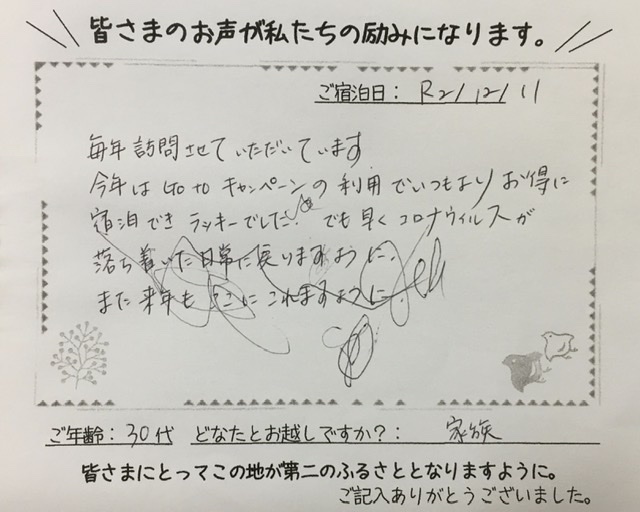 皆さまのお声が私たちの励みになります。
ご宿泊日: R2/12/11
毎年訪問させていただいています
今年はGo to キャンペーンの利用でいつもよりお得に
宿泊できラッキーでした。でも早くコロナウィルスが
落ち着いた日常に戻りますように。
また来年もここにこれますように。
ご年齢: 30代 どなたとお越しですか?: 家族
皆さまにとってこの地が第二のふるさととなりますように。
ご記入ありがとうございました。